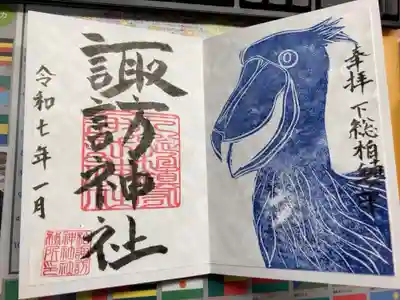 奉拝 下総柏鎮守
諏訪神社
令和七年一月